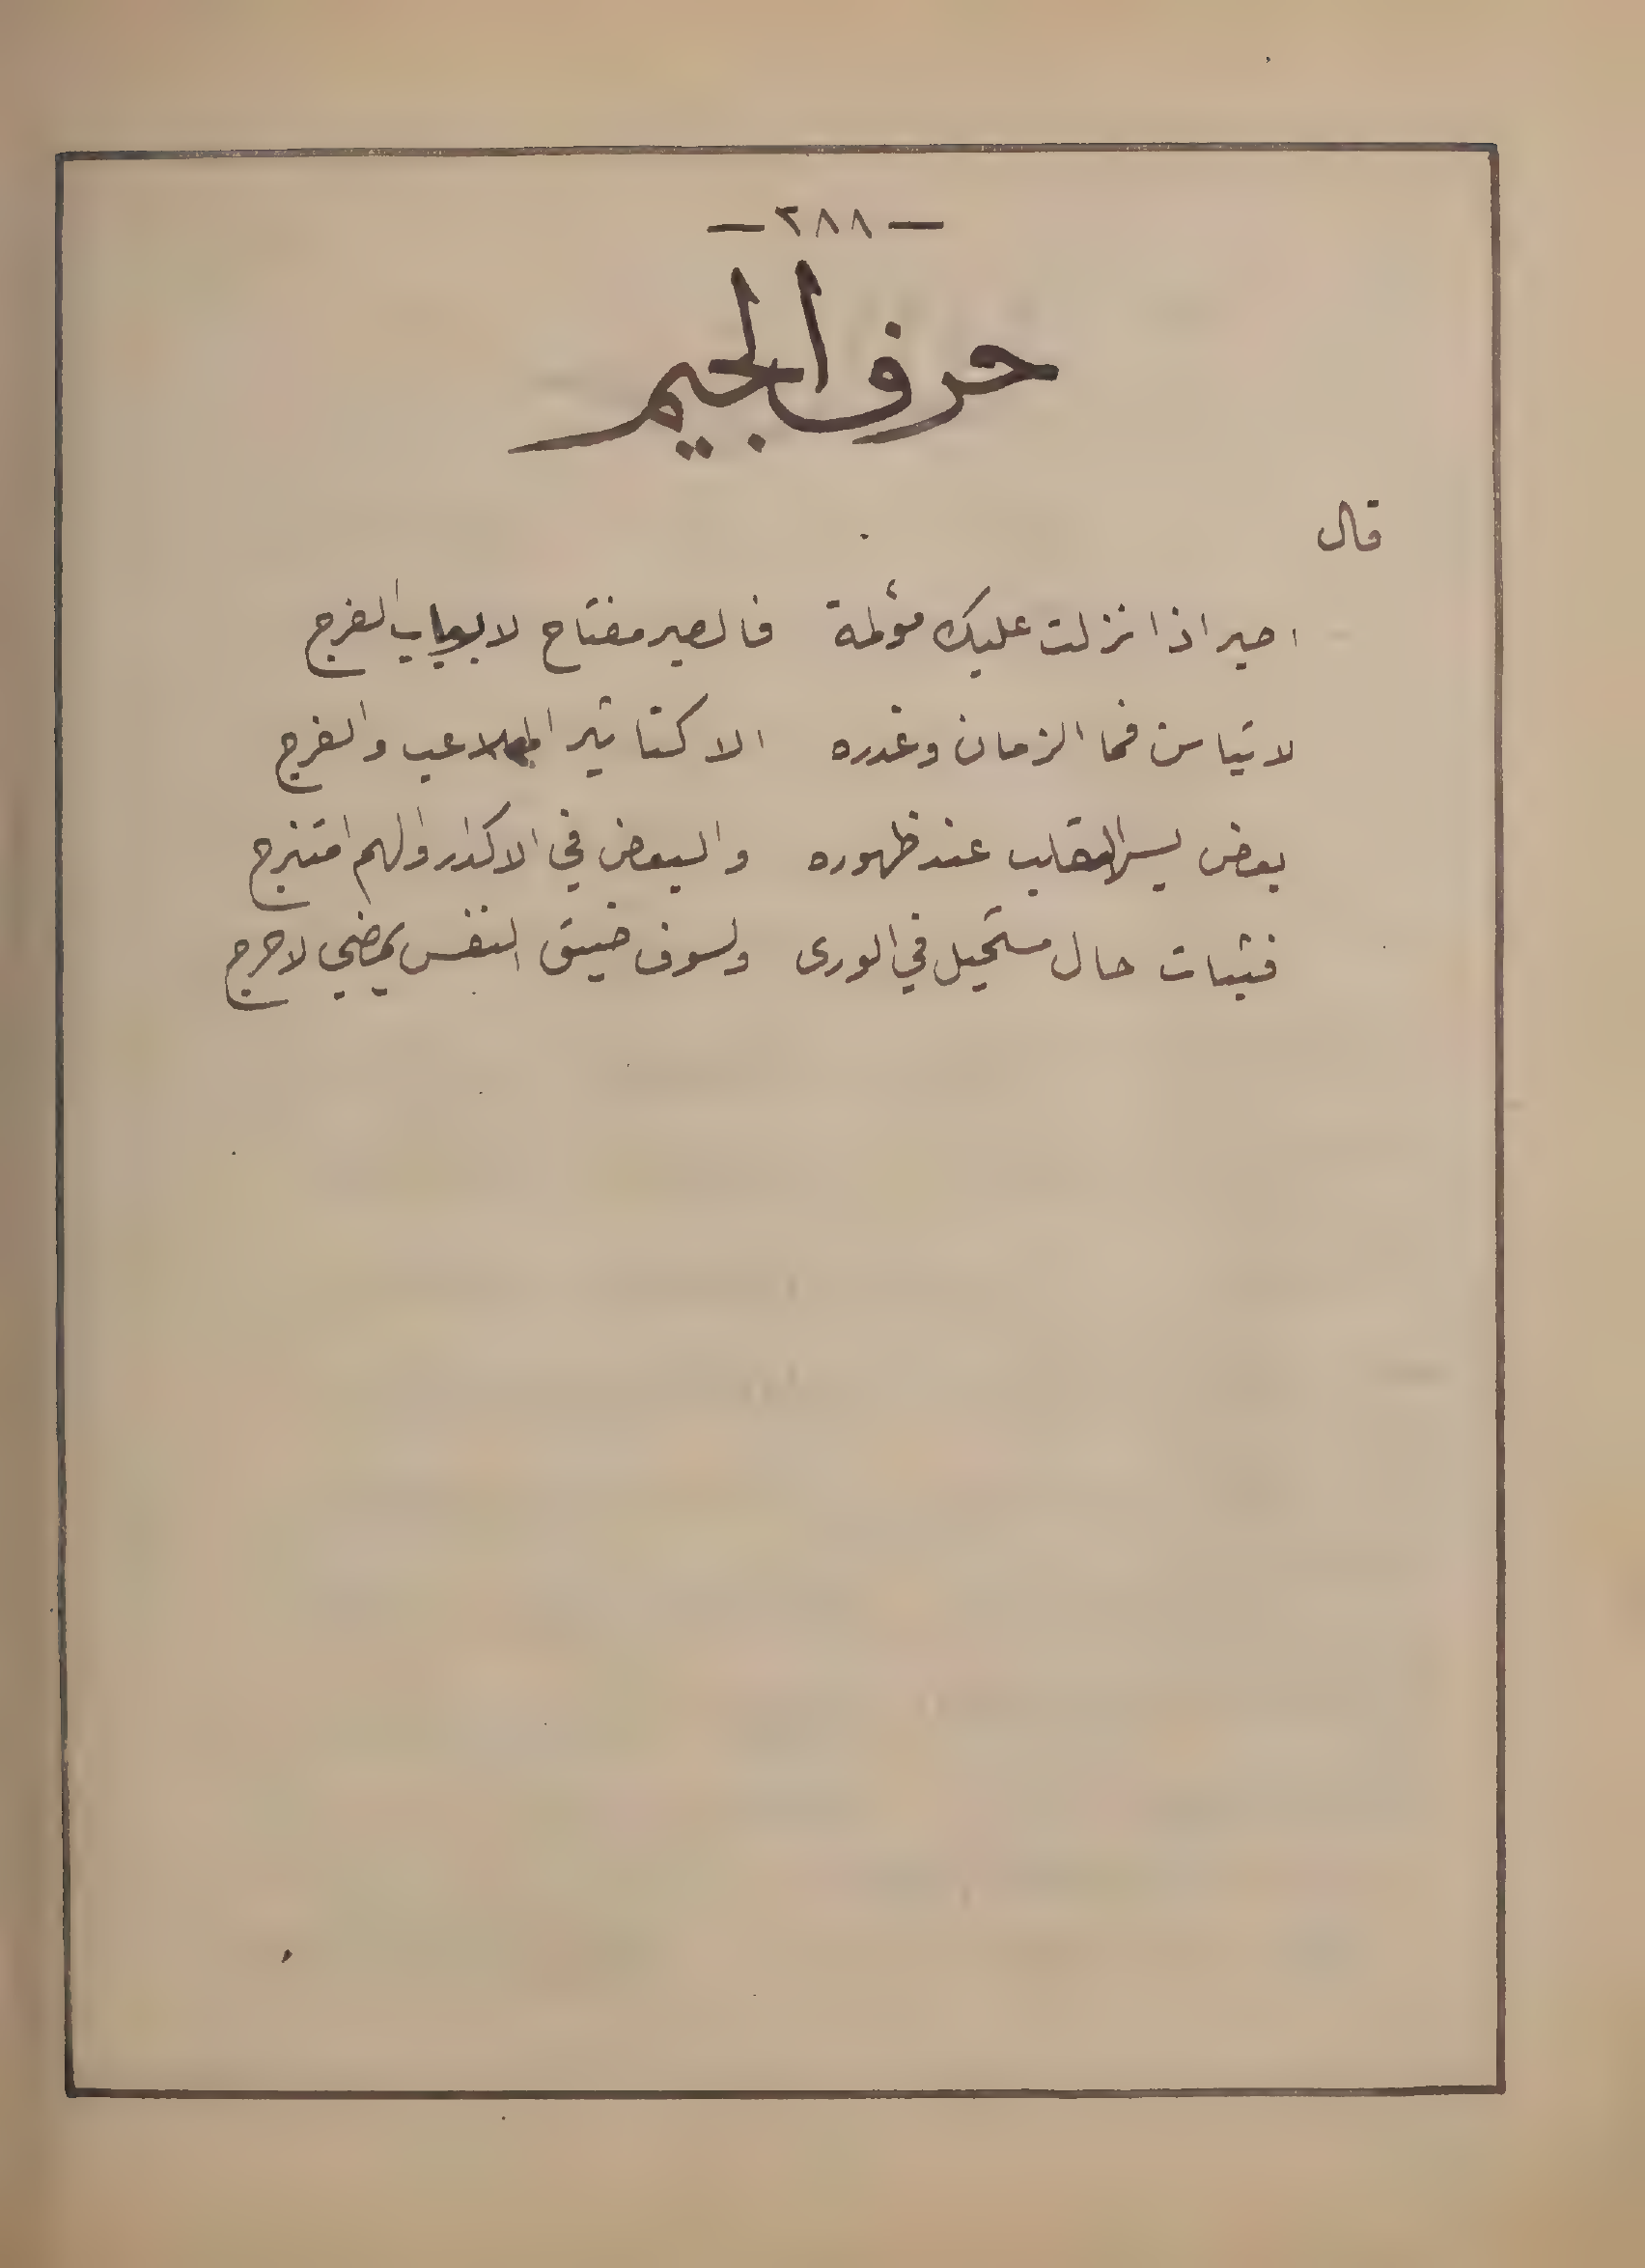 — ٢٨٨ —
حرف الجيم
قال
اصبر اذا نزلت عليك مؤلمة فالصبر مفتاح لابواب الفرج
لا تيأسن فما الزمان وغدره الا كتاثير الملاعب والفرج
بعض يسر القلب عند ظهوره والبعض في الاكدار والهم امتزج
فثبات حال مستحيل في الورى ولسوف ضيق النفس يمضي لا حرج